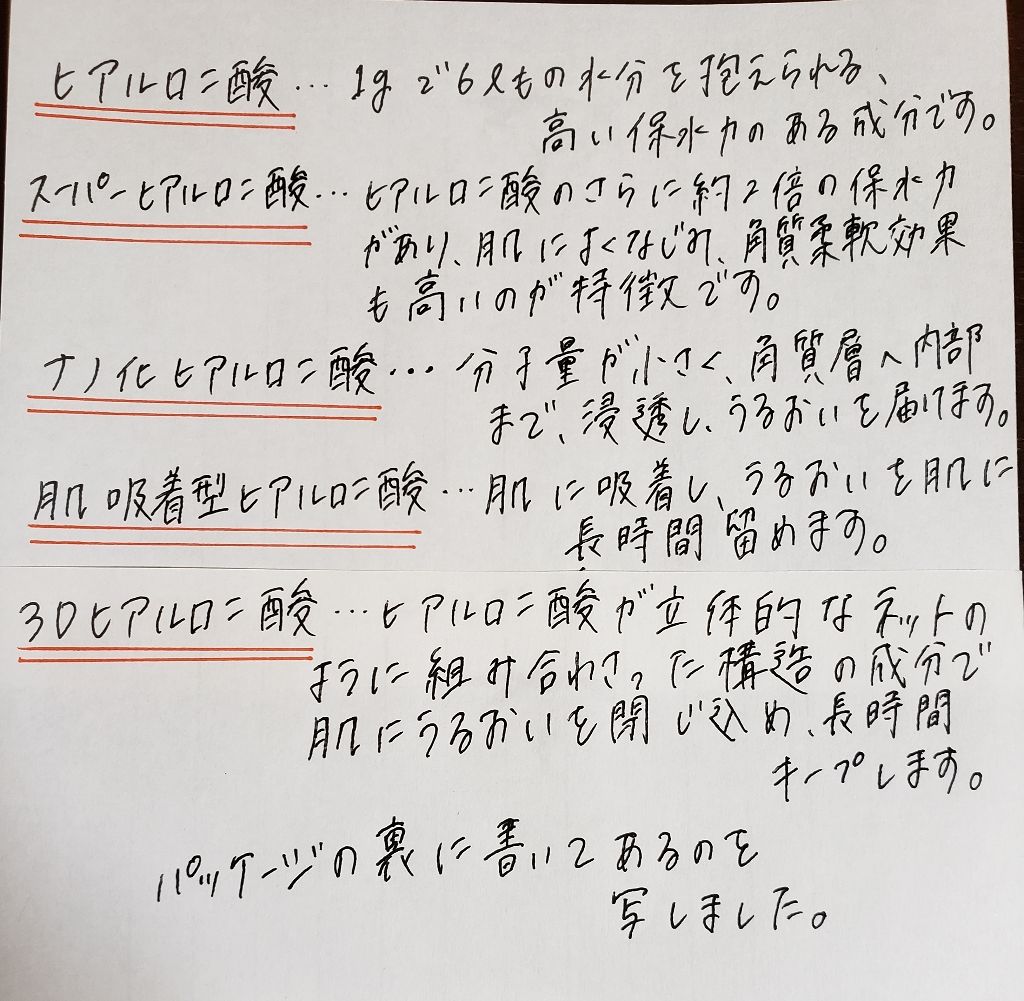 ヒアルロニ酸…1gで6ℓもの水分を抱えられる、
高い保水力のある成分です。
スーパーヒアルロニ酸…ヒアルロニ酸のさらに約2倍の保水力
があり、肌によくなじみ、角質柔軟効果
も高いのが特徴です。
ナノ化ヒアルロニ酸…分子量が小さく、角質層へ内部
まで、浸透し、うるおいを届けます。
肌吸着型ヒアルロニ酸…肌に吸着し、うるおいを肌に
長時間留めます。
3Dヒアルロニ酸…ヒアルロニ酸が立体的なネットの
ように組み合わさった構造の成分で
肌にうるおいを閉じ込め、長時間
キープします。
パッケージの裏に書いてあるのを
写しました。